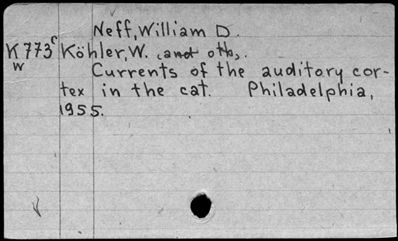 Neff, William D.
K773c Köhler, W. and oth.
w Currents of the auditory cor-
tex in the cat. Philadelphia,
1955.